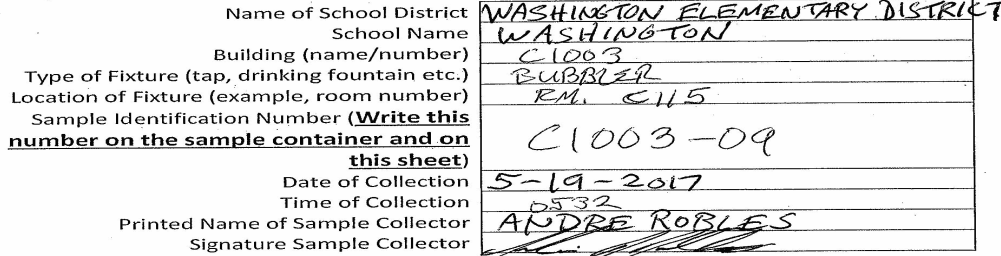 Name of School District WASHINGTON ELEMENTARY DISTRICT
School Name WASHINGTON
Building (name/number) C1003
Type of Fixture (tap, drinking fountain etc.) BUBBLER
Location of Fixture (example, room number) RM. C115
Sample Identification Number (Write this
number on the sample container and on C1003-09
this sheet)
Date of Collection 5-19-2017
Time of Collection 0532
Printed Name of Sample Collector ANDRE ROBLES
Signature Sample Collector